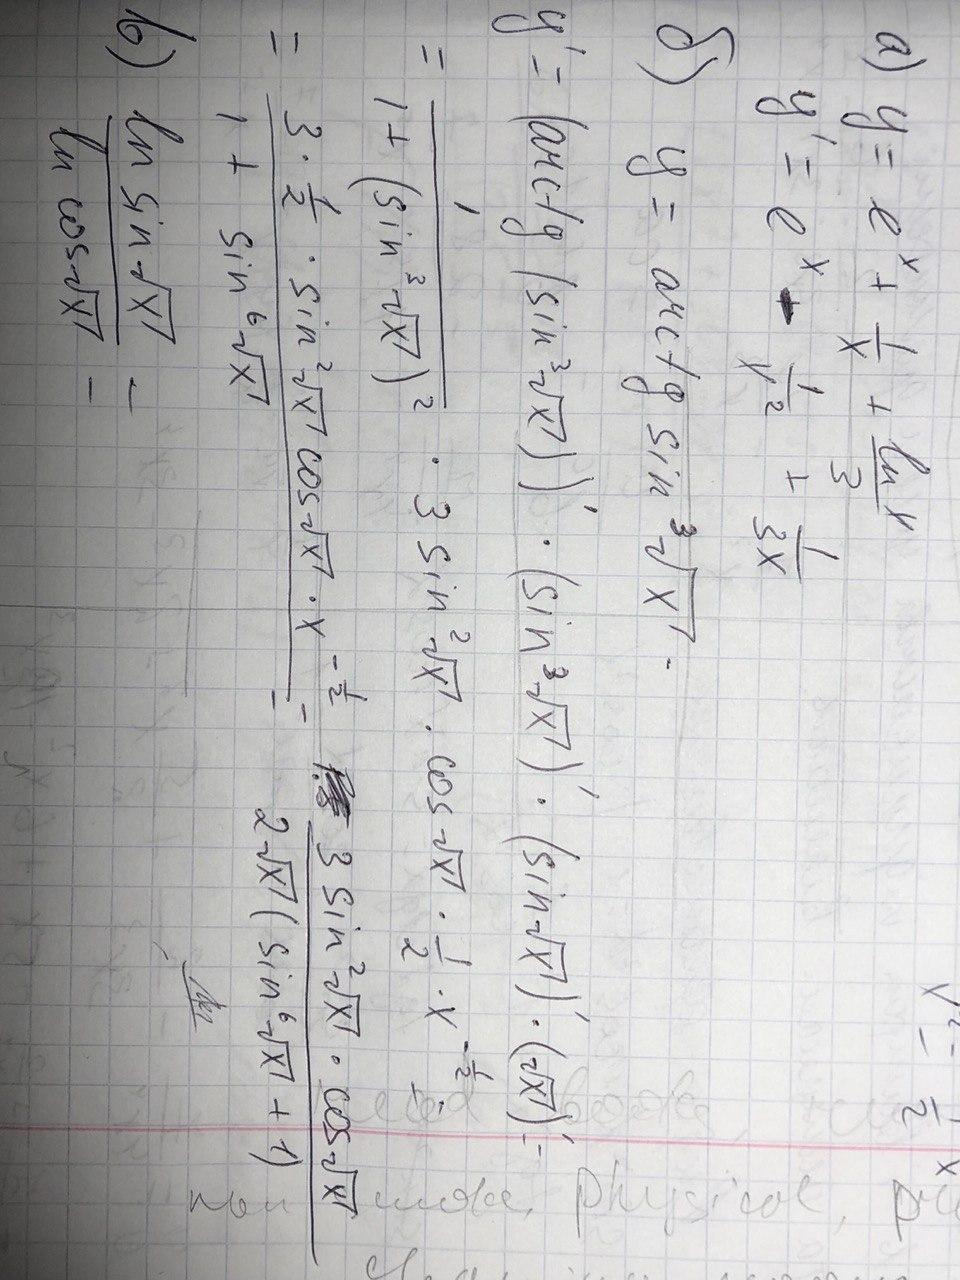 а) y = e^x + 1/x + ln x/3
y' = e^x - 1/x^2 + 1/3x
б) y = arctg sin^3 √x -
y' = (arctg (sin^3 √x))' · (sin^3 √x)' · (sin √x)' · (√x)' =
= 1/(1 + (sin^3 √x)^2) · 3 sin^2 √x · cos √x · 1/2 · x^(-1/2) =
= (3 · 1/2 · sin^2 √x cos √x · x^(-1/2))/(1 + sin^6 √x) = (3 sin^2 √x · cos √x)/(2√x (sin^6 √x + 1))
в) ln sin √x / ln cos √x =
more, physical,